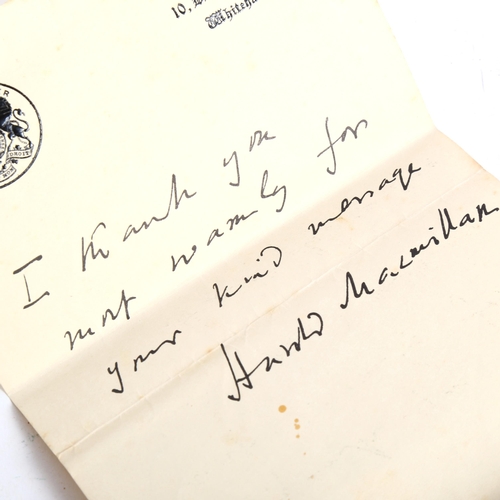 10,
Whiteha
DROIT
I thank you
most warmly for
your kind message
Harold Macmillan